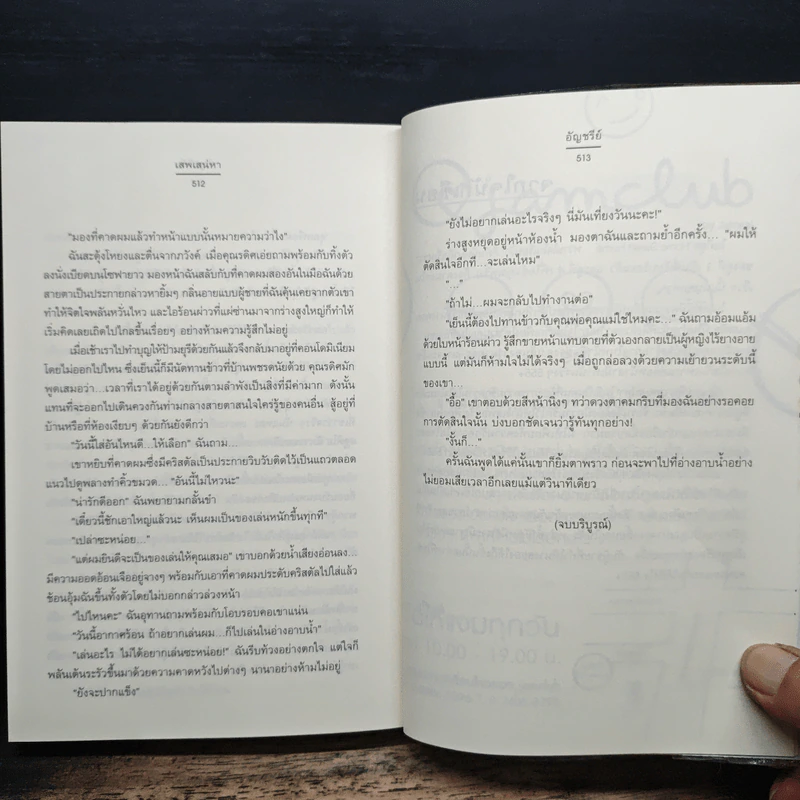 เสพเสน่หา
512
"มองที่คาดผมแล้วทำหน้าแบบนั้นหมายความว่าไง"
ฉันสะดุ้งโหยงและตื่นจากภวังค์ เมื่อคุณรดิศเอ่ยถามพร้อมกับทิ้งตัว
ลงนั่งเบียดบนโซฟายาว มองหน้าฉันสลับกับที่คาดผมสองอันในมือฉันด้วย
สายตาเป็นประกายกล่าวหายิ้มๆ กลิ่นอายแบบผู้ชายที่ฉันคุ้นเคยจากตัวเขา
ทำให้จิตใจพลันหวั่นไหว และไอร้อนผ่าวที่แผ่ซ่านมาจากร่างสูงใหญ่ก็ทำให้
เริ่มคิดเลยเถิดไปไกลขึ้นเรื่อยๆ อย่างห้ามความรู้สึกไม่อยู่
เมื่อเช้าเราไปทำบุญให้ป้ามยุรีด้วยกันแล้วจึงกลับมาอยู่ที่คอนโดมิเนียม
โดยไม่ออกไปไหน ซึ่งเย็นนี้ก็มีนัดทานข้าวที่บ้านพชรดนัยด้วย คุณรดิศมัก
พูดเสมอว่า...เวลาที่เราได้อยู่ด้วยกันตามลำพังเป็นสิ่งที่มีค่ามาก ดังนั้น
แทนที่จะออกไปเดินควงกันท่ามกลางสายตาสนใจใคร่รู้ของคนอื่น สู้อยู่ที่
บ้านหรือที่ห้องเงียบๆ ด้วยกันยังดีกว่า
"วันนี้ใส่อันไหนดี...ให้เลือก" ฉันถาม...
เขาหยิบที่คาดผมซึ่งมีคริสตัลเป็นประกายวิบวับติดไว้เป็นแถวตลอด
แนวไปดูพลางทำคิ้วขมวด... "อันนี้ไม่ไหวนะ"
"น่ารักดีออก" ฉันพยายามกลั้นขำ
"เดี๋ยวนี้ชักเอาใหญ่แล้วนะ เห็นผมเป็นของเล่นหนักขึ้นทุกที"
"เปล่าซะหน่อย..."
"แต่ผมยินดีจะเป็นของเล่นให้คุณเสมอ" เขาบอกด้วยน้ำเสียงอ่อนลง...
มีความออดอ้อนเจืออยู่จางๆ พร้อมกับเอาที่คาดผมประดับคริสตัลไปใส่แล้ว
ช้อนอุ้มฉันขึ้นทั้งตัวโดยไม่บอกกล่าวล่วงหน้า
"ไปไหนคะ" ฉันอุทานถามพร้อมกับโอบรอบคอเขาแน่น
"วันนี้อากาศร้อน ถ้าอยากเล่นผม...ก็ไปเล่นในอ่างอาบน้ำ"
"เล่นอะไร ไม่ได้อยากเล่นซะหน่อย!" ฉันรีบท้วงอย่างตกใจ แต่ใจก็
พลันเต้นระรัวขึ้นมาด้วยความคาดหวังไปต่างๆ นานาอย่างห้ามไม่อยู่
"ยังจะปากแข็ง"
อัญชรีย์
513
"ยังไม่อยากเล่นอะไรจริงๆ นี่มันเที่ยงวันนะคะ!"
ร่างสูงหยุดอยู่หน้าห้องน้ำ มองตาฉันและถามย้ำอีกครั้ง... "ผมให้
ตัดสินใจอีกที...จะเล่นไหม"
"..."
"ถ้าไม่...ผมจะกลับไปทำงานต่อ"
"เย็นนี้ต้องไปทานข้าวกับคุณพ่อคุณแม่ใช่ไหมคะ..." ฉันถามอ้อมแอ้ม
ด้วยใบหน้าร้อนผ่าว รู้สึกขายหน้าแทบตายที่ตัวเองกลายเป็นผู้หญิงไร้ยางอาย
แบบนี้ แต่มันก็ห้ามใจไม่ได้จริงๆ เมื่อถูกล่อลวงด้วยความเย้ายวนระดับนี้
ของเขา...
"อื้อ" เขาตอบด้วยสีหน้านิ่งๆ ทว่าดวงตาคมกริบที่มองฉันอย่างรอคอย
การตัดสินใจนั้น บ่งบอกชัดเจนว่ารู้ทันทุกอย่าง!
"งั้นก็..."
ครั้นฉันพูดได้แค่นั้นเขาก็ยิ้มตาพราว ก่อนจะพาไปที่อ่างอาบน้ำอย่าง
ไม่ยอมเสียเวลาอีกเลยแม้แต่วินาทีเดียว
(จบบริบูรณ์)